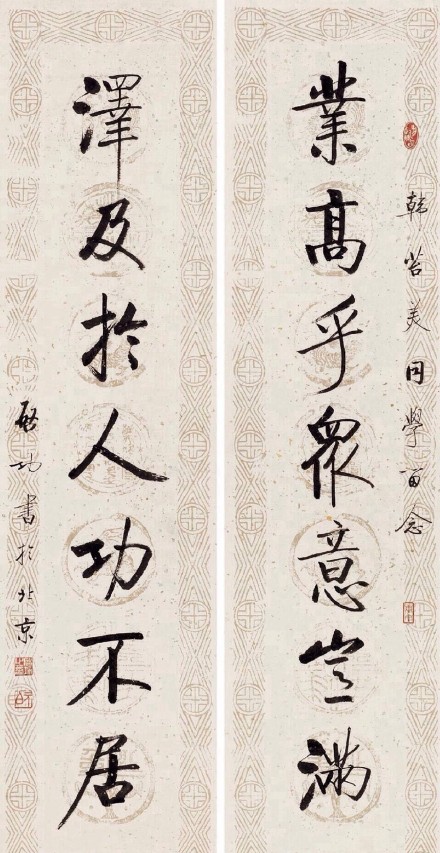 韓美同學留念
業高乎眾意豈滿
澤及於人功不居
啟功書於北京